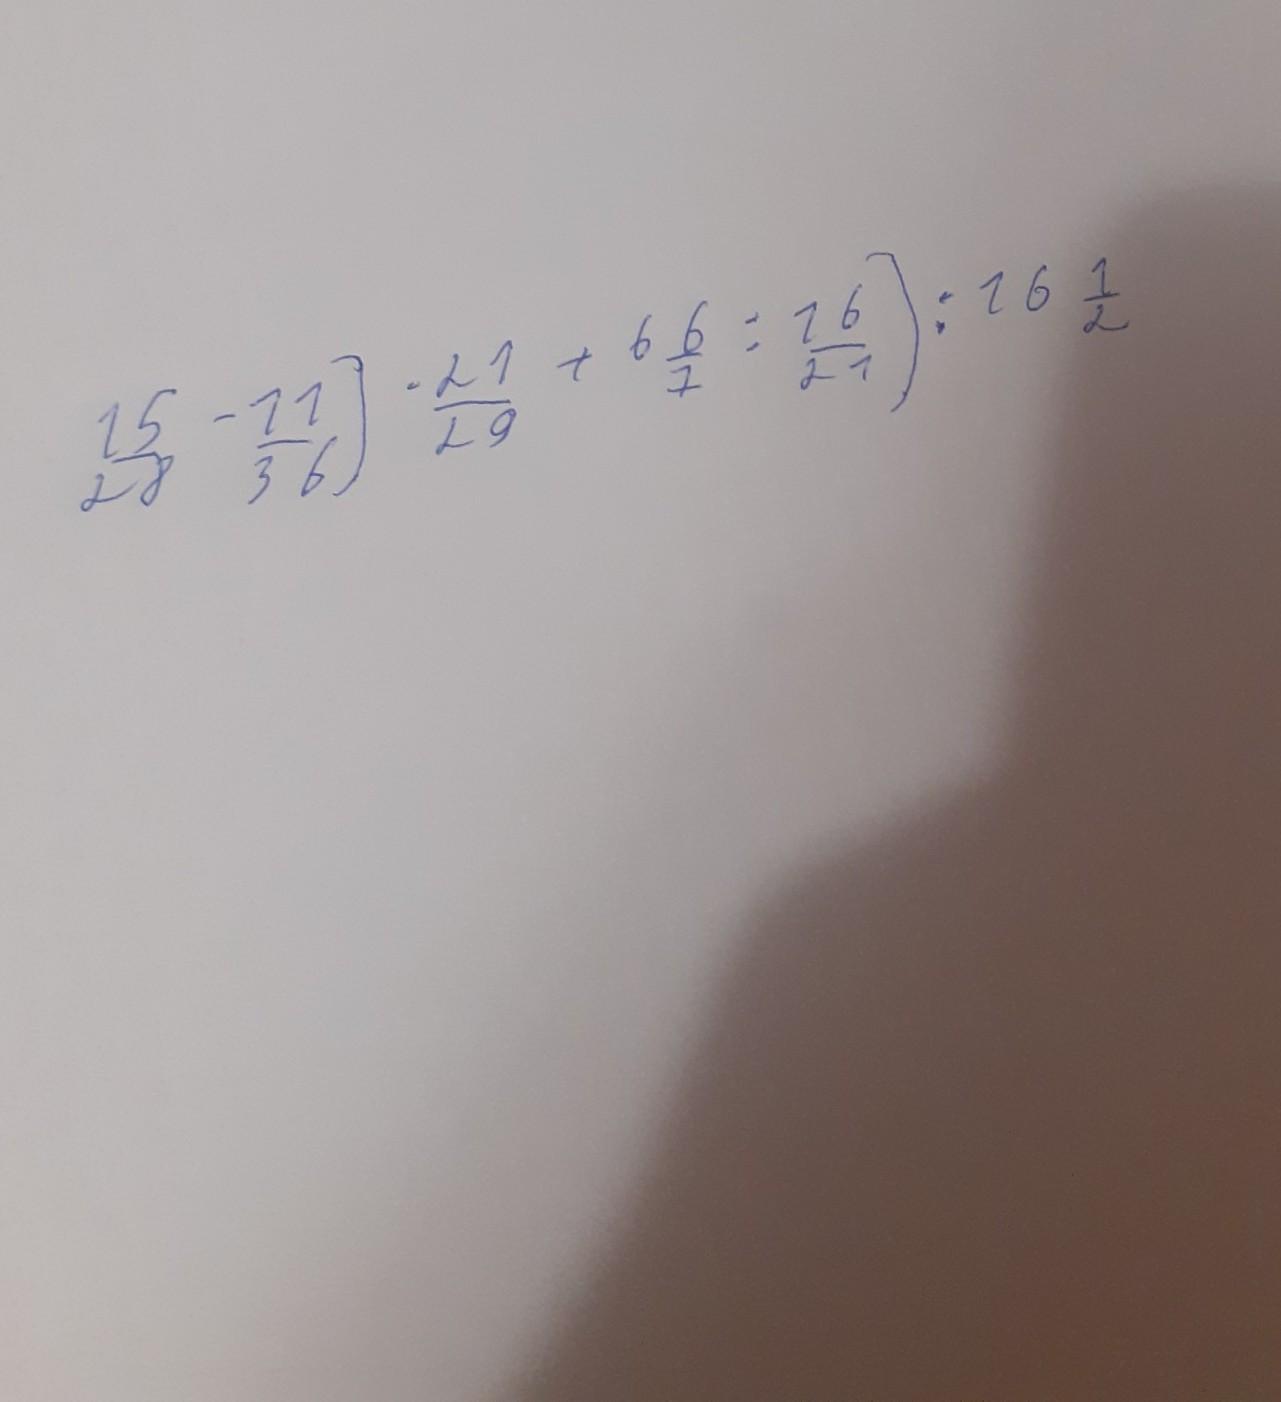 15/28 - 11/36) · 21/29 + 6 6/7 : 16/21) : 16 1/2